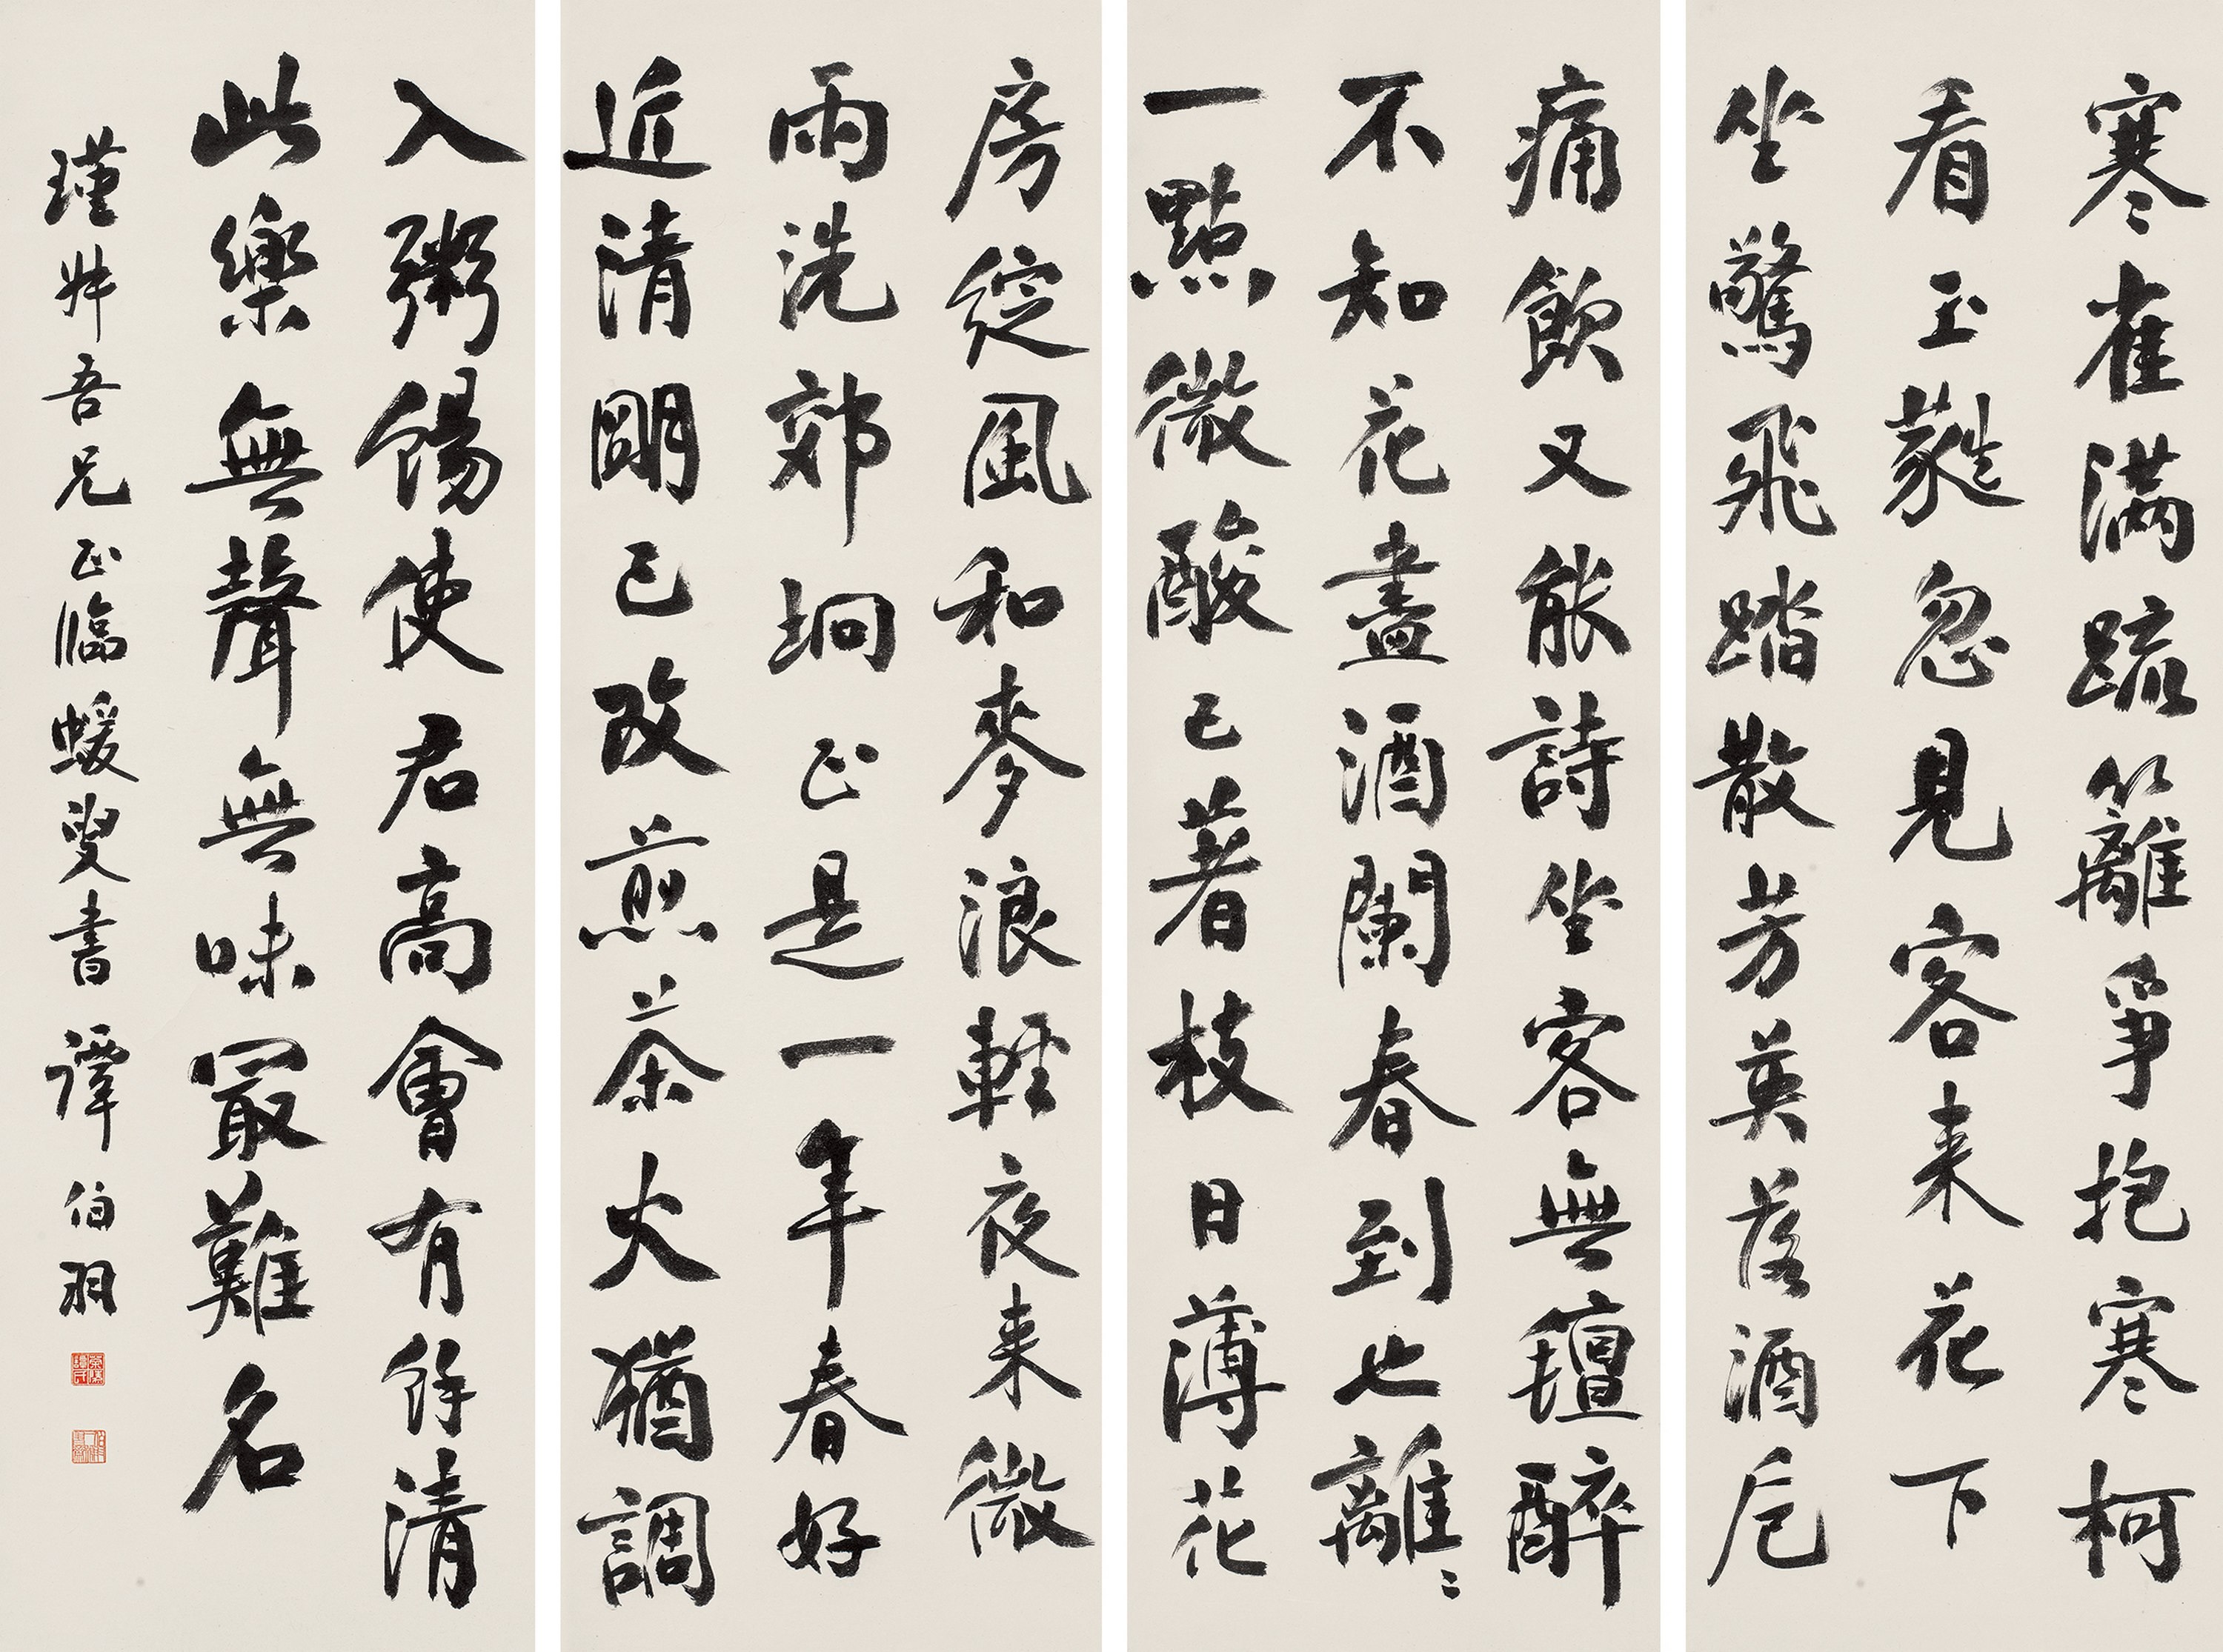 寒雀滿疏籬爭抱寒柯
看玉蕤忽見客来花下
坐驚飛踏散芳英落酒卮
痛飲又能詩坐客無氊醉
不知花盡酒闌春到也離〻
一點微酸已著枝日薄花
房綻風和麥浪輕夜来微
雨洗郊坰正是一年春好
近清明已改煎茶火猶調
入粥餳使君高會有餘清
此樂無聲無味最難名
瑾叔吾兄正臨蝯叟書 譚伯羽